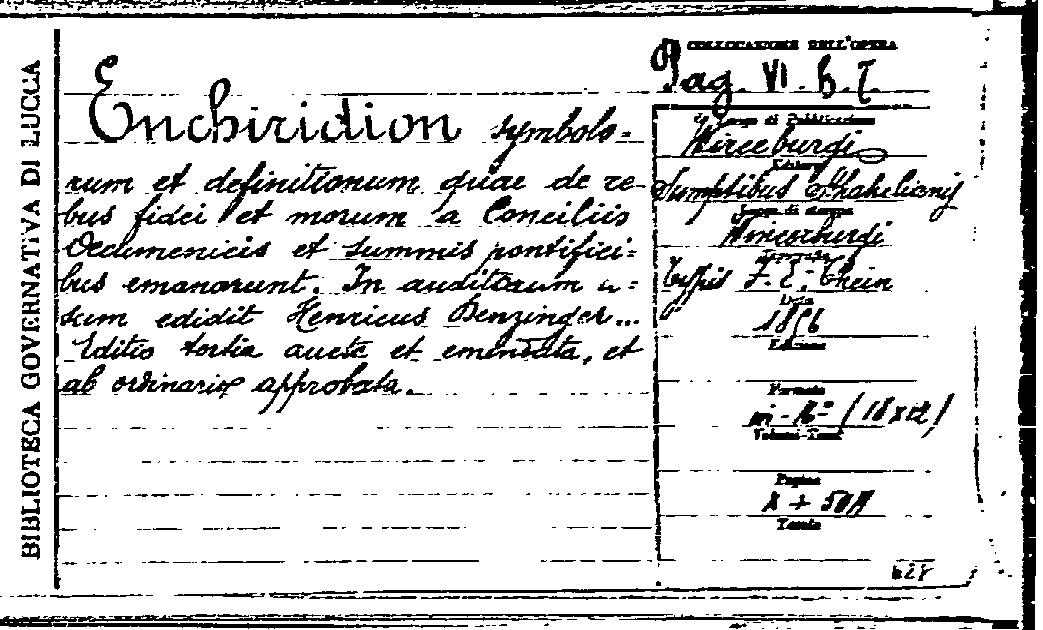 BIBLIOTECA GOVERNATIVA DI LUCCA
Enchiridion symbolo-
rum et definitionum quae de re-
bus fidei et morum a Conciliis
Oecumenicis et summis pontifici=
bus emanarunt. In auditorum u=
sum edidit Henricus Denzinger...
Editio tertia aucta et emendata, et
ab ordinario approbata.
COLLOCAZIONE DELL'OPERA
Pag. VI. b. 7.
Luogo di Pubblicazione
Wirceburgi
Editore
Sumptibus Stahelianis
Luogo di stampa
Wirceburgi
Typis F. E. Thein
Data
1856
Edizione
Formato
(18 x 12)
Volumi-Tomi
Pagine
X +
Tavole